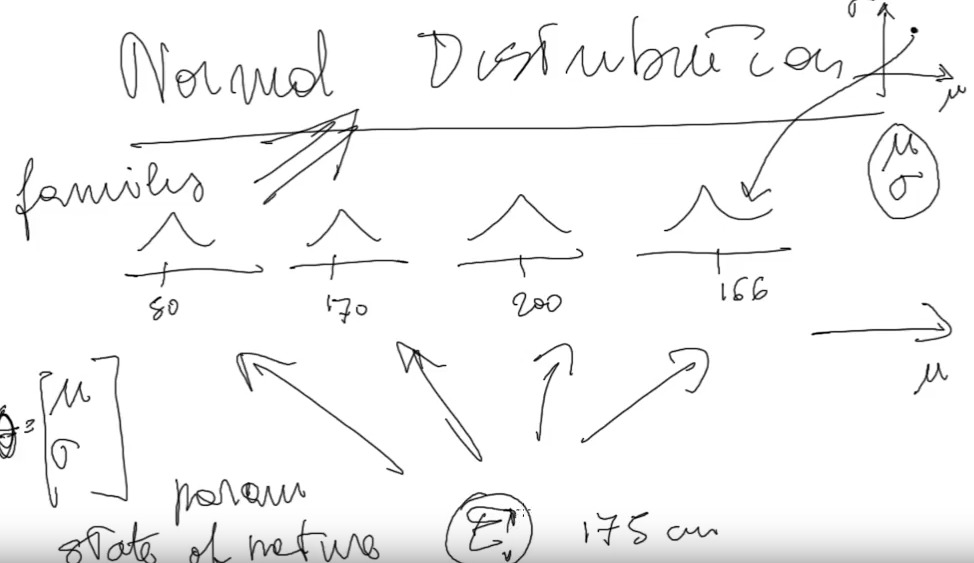 Normal Distribution
μ
μ
σ
families
80 170 200 166
μ
θ = [μ
σ]
param
state of nature
175 cm